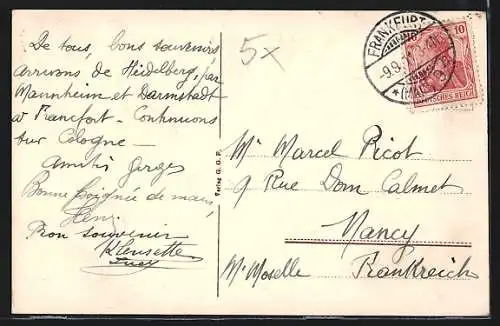 De tous, bons souvenirs
arrivons de Heidelberg, par
Mannheim et Darmstadt
a Francfort - Continuons
sur Cologne -
Amitiés Georges
Bonne poignée de main,
Henri
Bon souvenir
5x
FRANKFURT
9.9.
* (MAIN)
10
DEUTSCHES REICH
Verlag G. G. F.
Mr Marcel Picot
9 Rue Dom Calmet
Nancy
Mt Moselle Frankreich